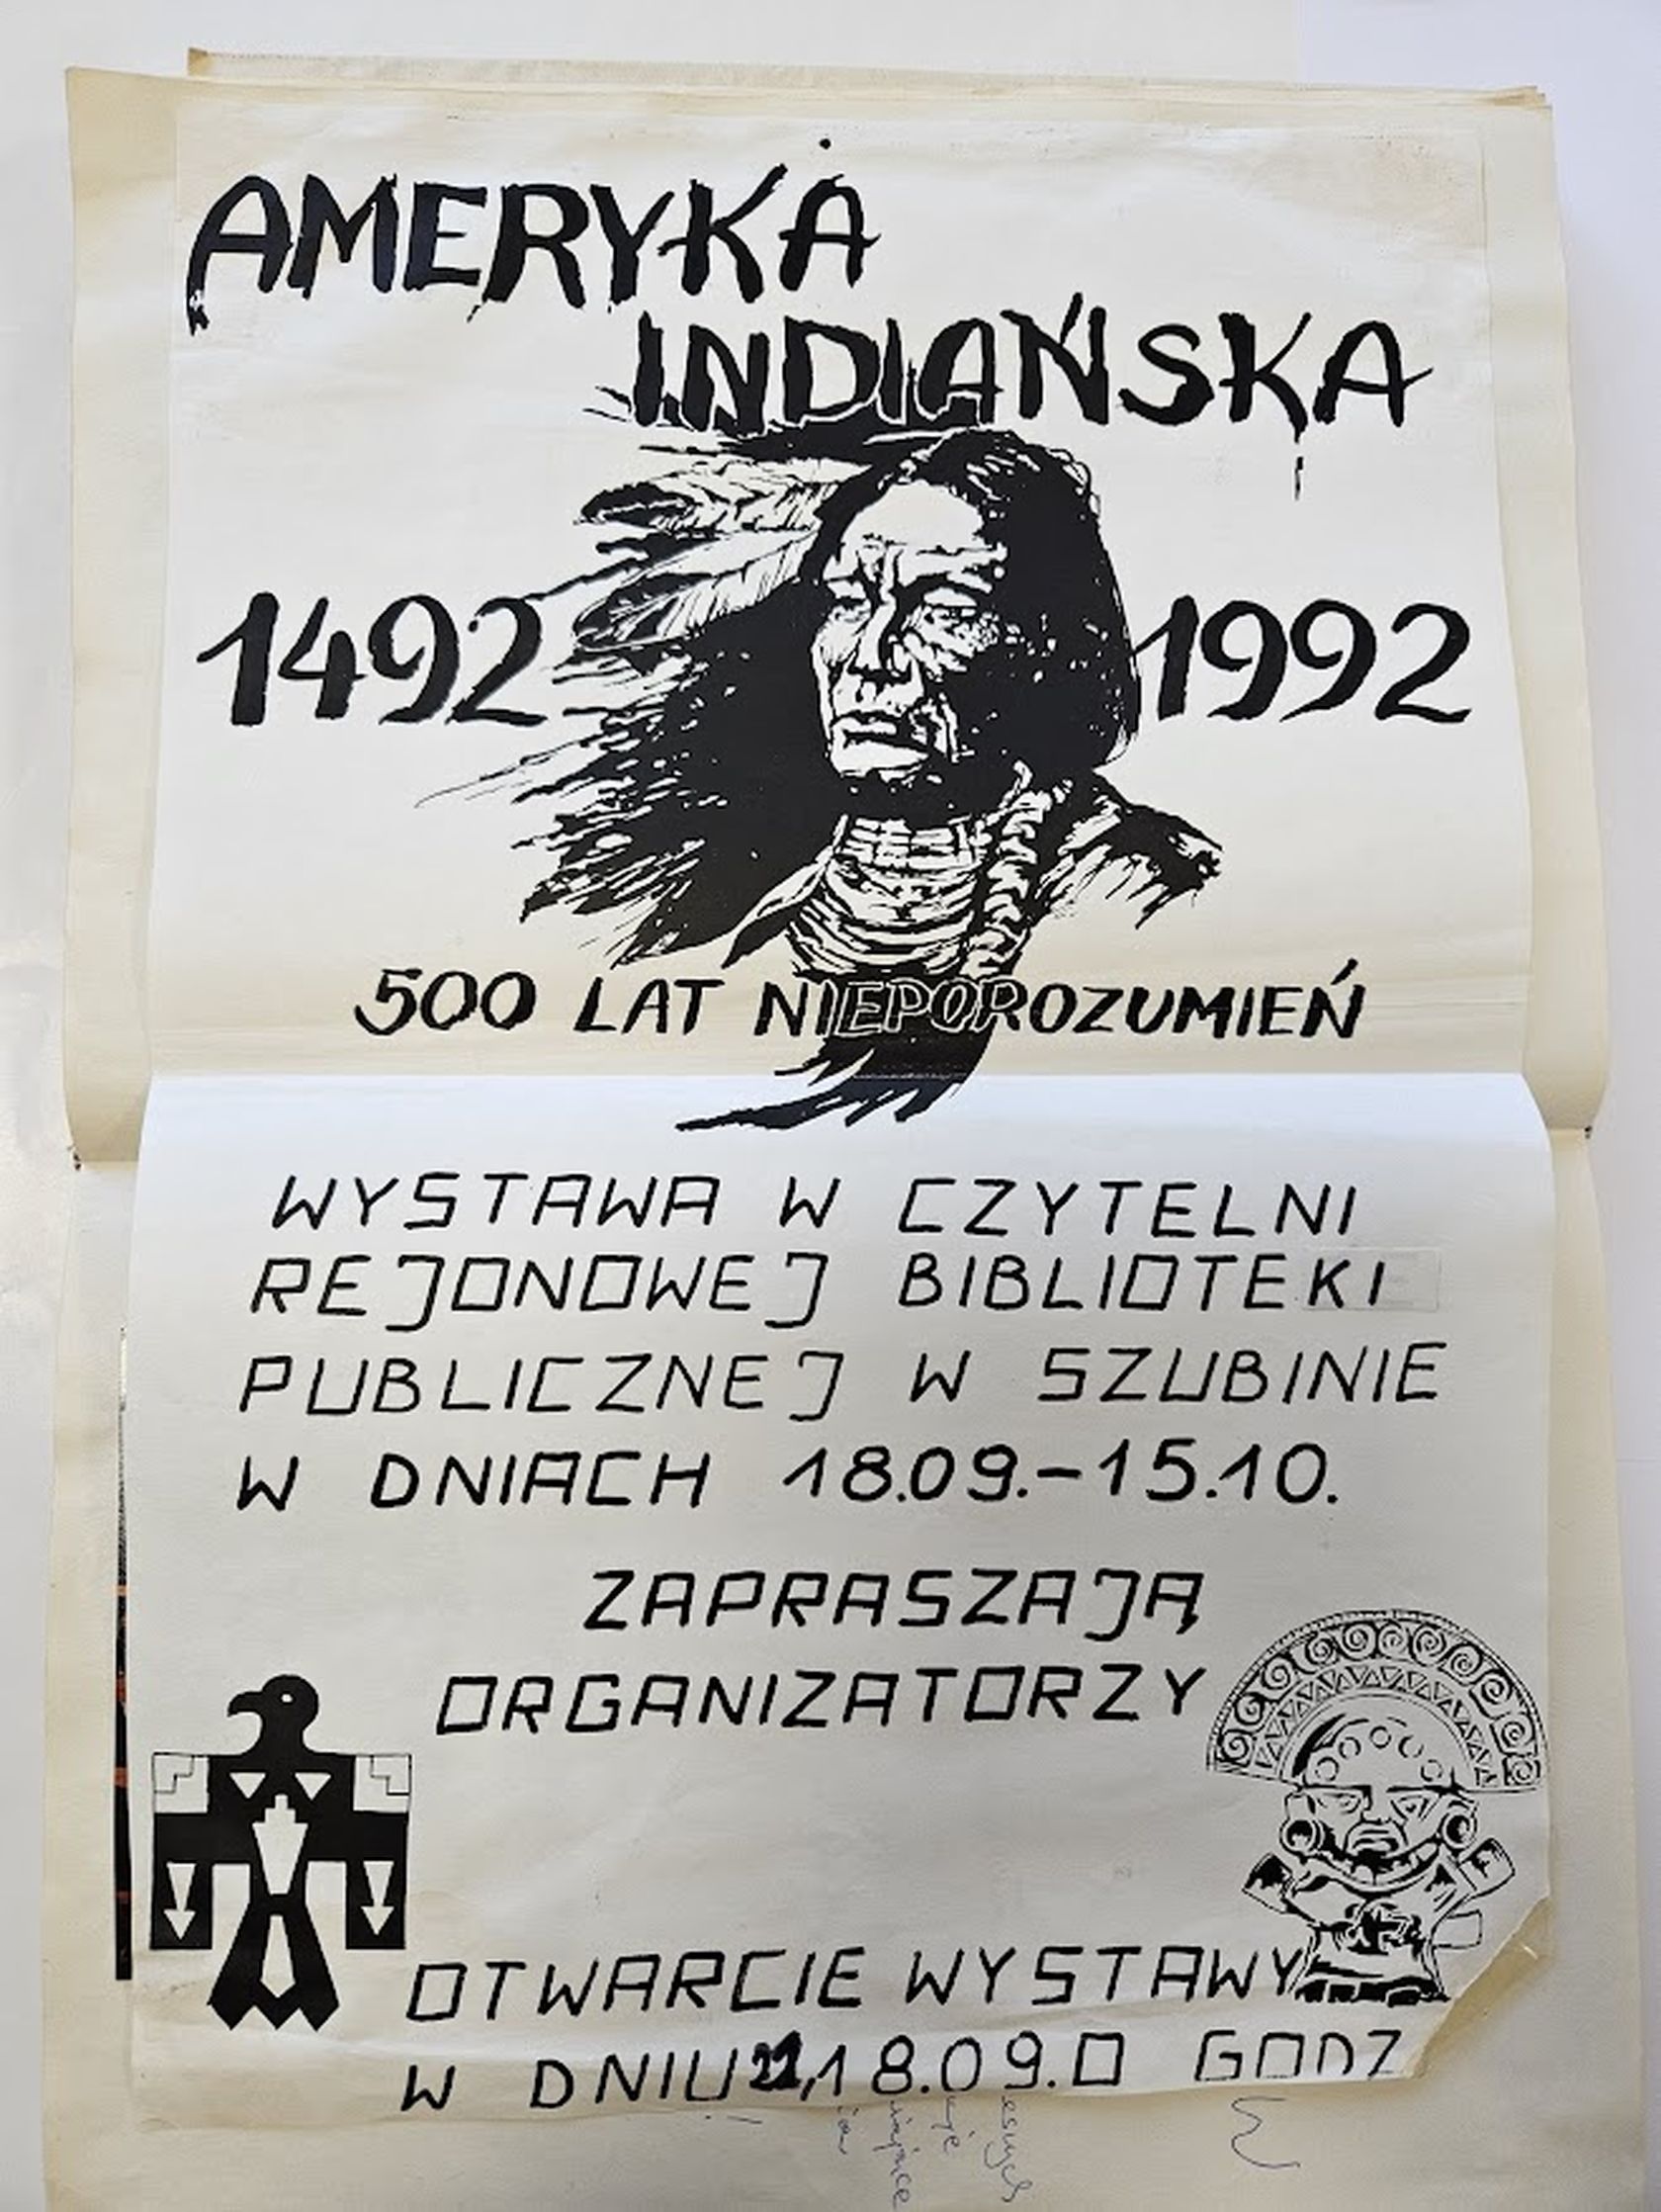 AMERYKA
INDIAŃSKA
1492 1992
500 LAT NIEPOROZUMIEŃ
WYSTAWA W CZYTELNI
REJONOWEJ BIBLIOTEKI
PUBLICZNEJ W SZUBINIE
W DNIACH 18.09.-15.10.
ZAPRASZAJĄ
ORGANIZATORZY
OTWARCIE WYSTAWY
W DNIU 18.09.O GODZ